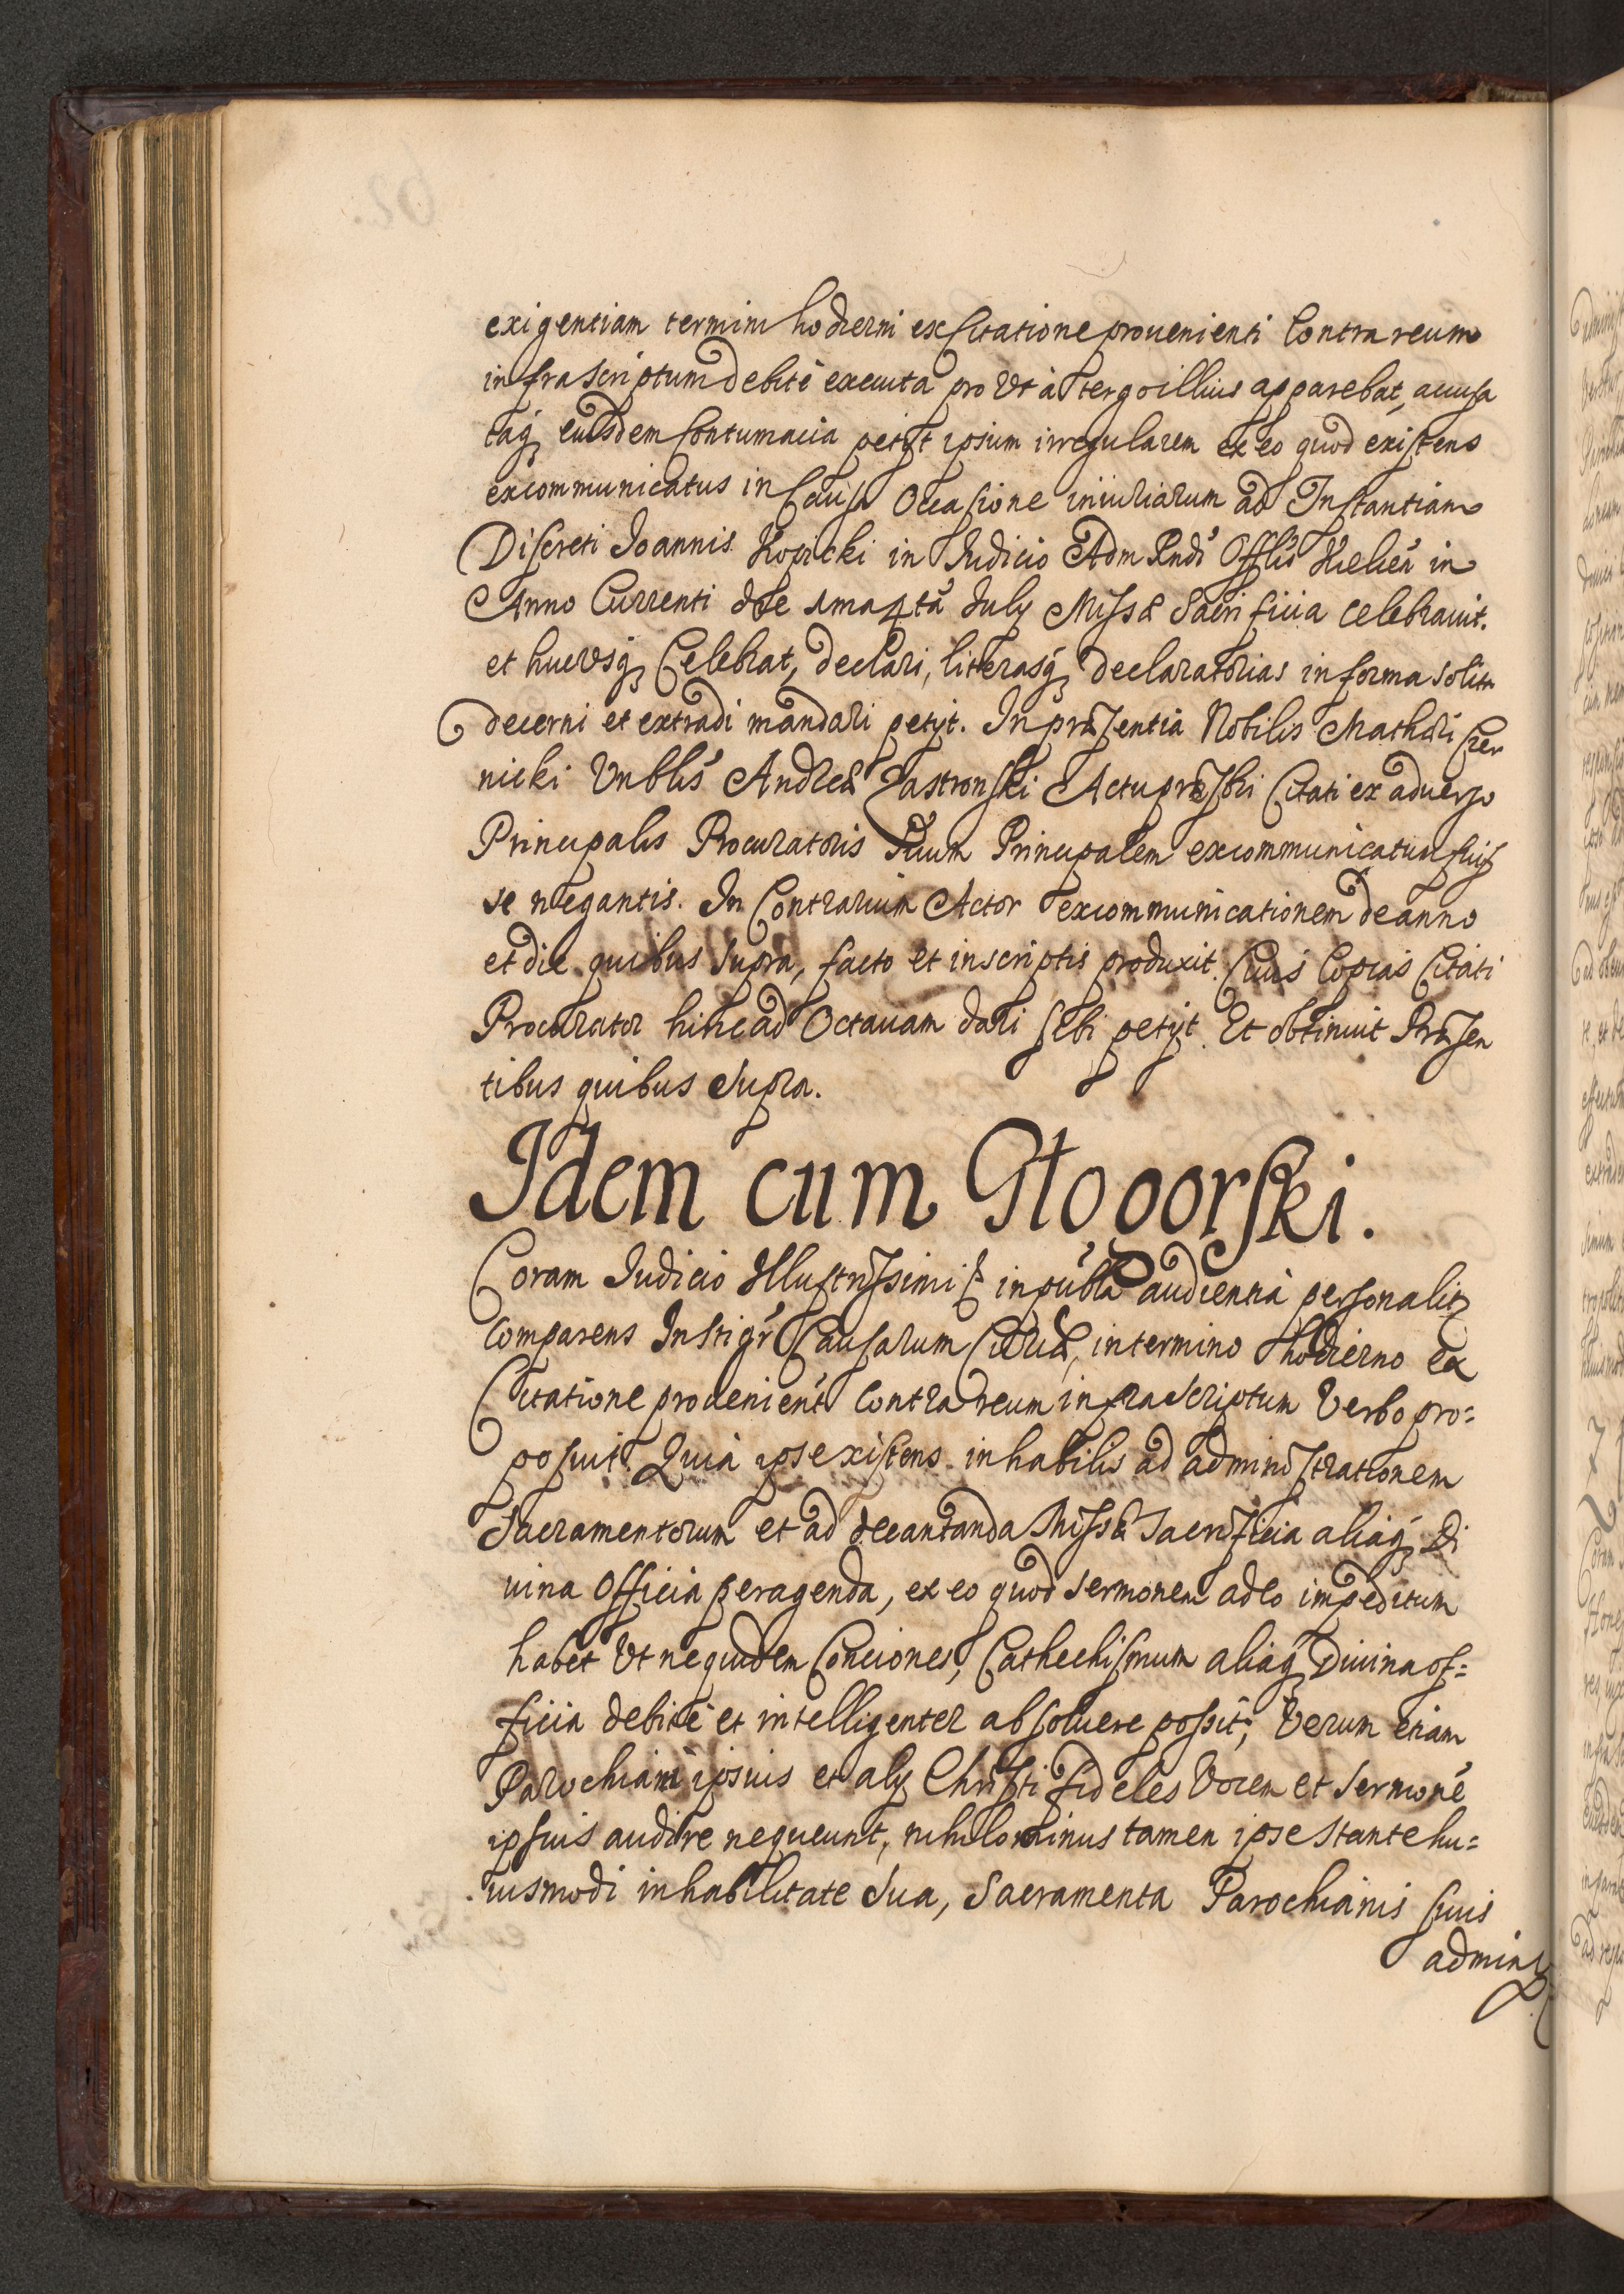 exigentiam termini hodierni ex Citatione prouenienti Contra reum
infrascriptum debitè executa pro Vt à tergo illius apparebat, accusa
taq; eiusdem Contumacia petijt ipsum irregularem ex eo quod existens
excommunicatus in Causa Occasione iniuriarum ad Instantiam
Discreti Ioannis Kopicki in Iudicio Adm Rndi Offlis Kielceñ in
Anno Currenti die 4ta July Missæ Sacrificia celebrauit.
et hucusq; Celebrat, declari, literasq; declaratorias in forma solita
decerni et extradi mandari petijt. In præsentia Nobilis Mathæi Czer
nicki Vnblis Andreæ Zastronski Actu præsbri Citati ex aduerso
Principalis Procuratoris Suum Principalem excommunicatum fuis
se negantis. In Contrarium Actor excommunicationem de anno
et die quibus supra, facto et in scriptis produxit. Cuius Copias Citati
Procurator hinc ad Octauam dari sibi petijt. Et obtinuit Præsen
tibus quibus Supra.
Idem cum Głogorski.
Coram Iudicio Illustrissimi & in publa audientia personalit;
Comparens Instigr Causarum Curiæ, in termino Hodierno ex
Citatione prouenient Contra reum infrascriptum Verbo pro=
posuit. Quia ipse existens inhabilis ad administrationem
Sacramentorum et ad decantanda Missæ Sacrificia aliaq; Di
uina Officia peragenda, ex eo quod sermonem adeo impeditum
habet Vt nequidem Conciones, Cathechismum aliaq; Diuina of=
ficia debitè et intelligenter absoluere possit; Verum etiam
Parochiani ipsius et alij Christi fideles Vocem et sermonē
ipsius audire nequeunt, nihilominus tamen ipse stante hu=
iusmodi inhabilitate Sua, Sacramenta Parochianis suis
admini